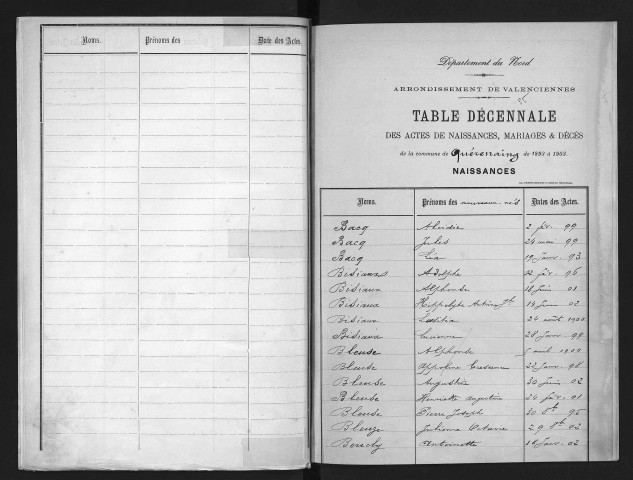 Noms. Prénoms des Date des Actes.
Département du Nord
ARRONDISSEMENT DE VALENCIENNES
TABLE DÉCENNALE
DES ACTES DE NAISSANCES, MARIAGES & DÉCÈS
de la commune de Quérenaing de 1893 à 1903.
NAISSANCES
Noms. Prénoms des nouveaux-nés Dates des Actes.
Bacq 2 fév. 99
Bacq Jules 24 mai 99
Bacq Léa 19 Janv. 93
Bisiaux Adolphe 12 fév. 96
Bisiaux Alphonse 18 Juin 01
Bisiaux Hippolyte 14 Juin 02
Bisiaux Laetitia 24 août 1900
Bisiaux Lucienne 28 Janv. 99
Bleuse Alphonse avril 1900
Bleuse Appoline 22 Janv. 96
Bleuse Augustin 30 Juin 02
Bleuse Henriette Augustine 24 fév. 01
Bleuse Pierre Joseph 30 8bre 95
Bleuze Julienne Octavie 29 8bre 02
Antoinette 14 Janv. 02